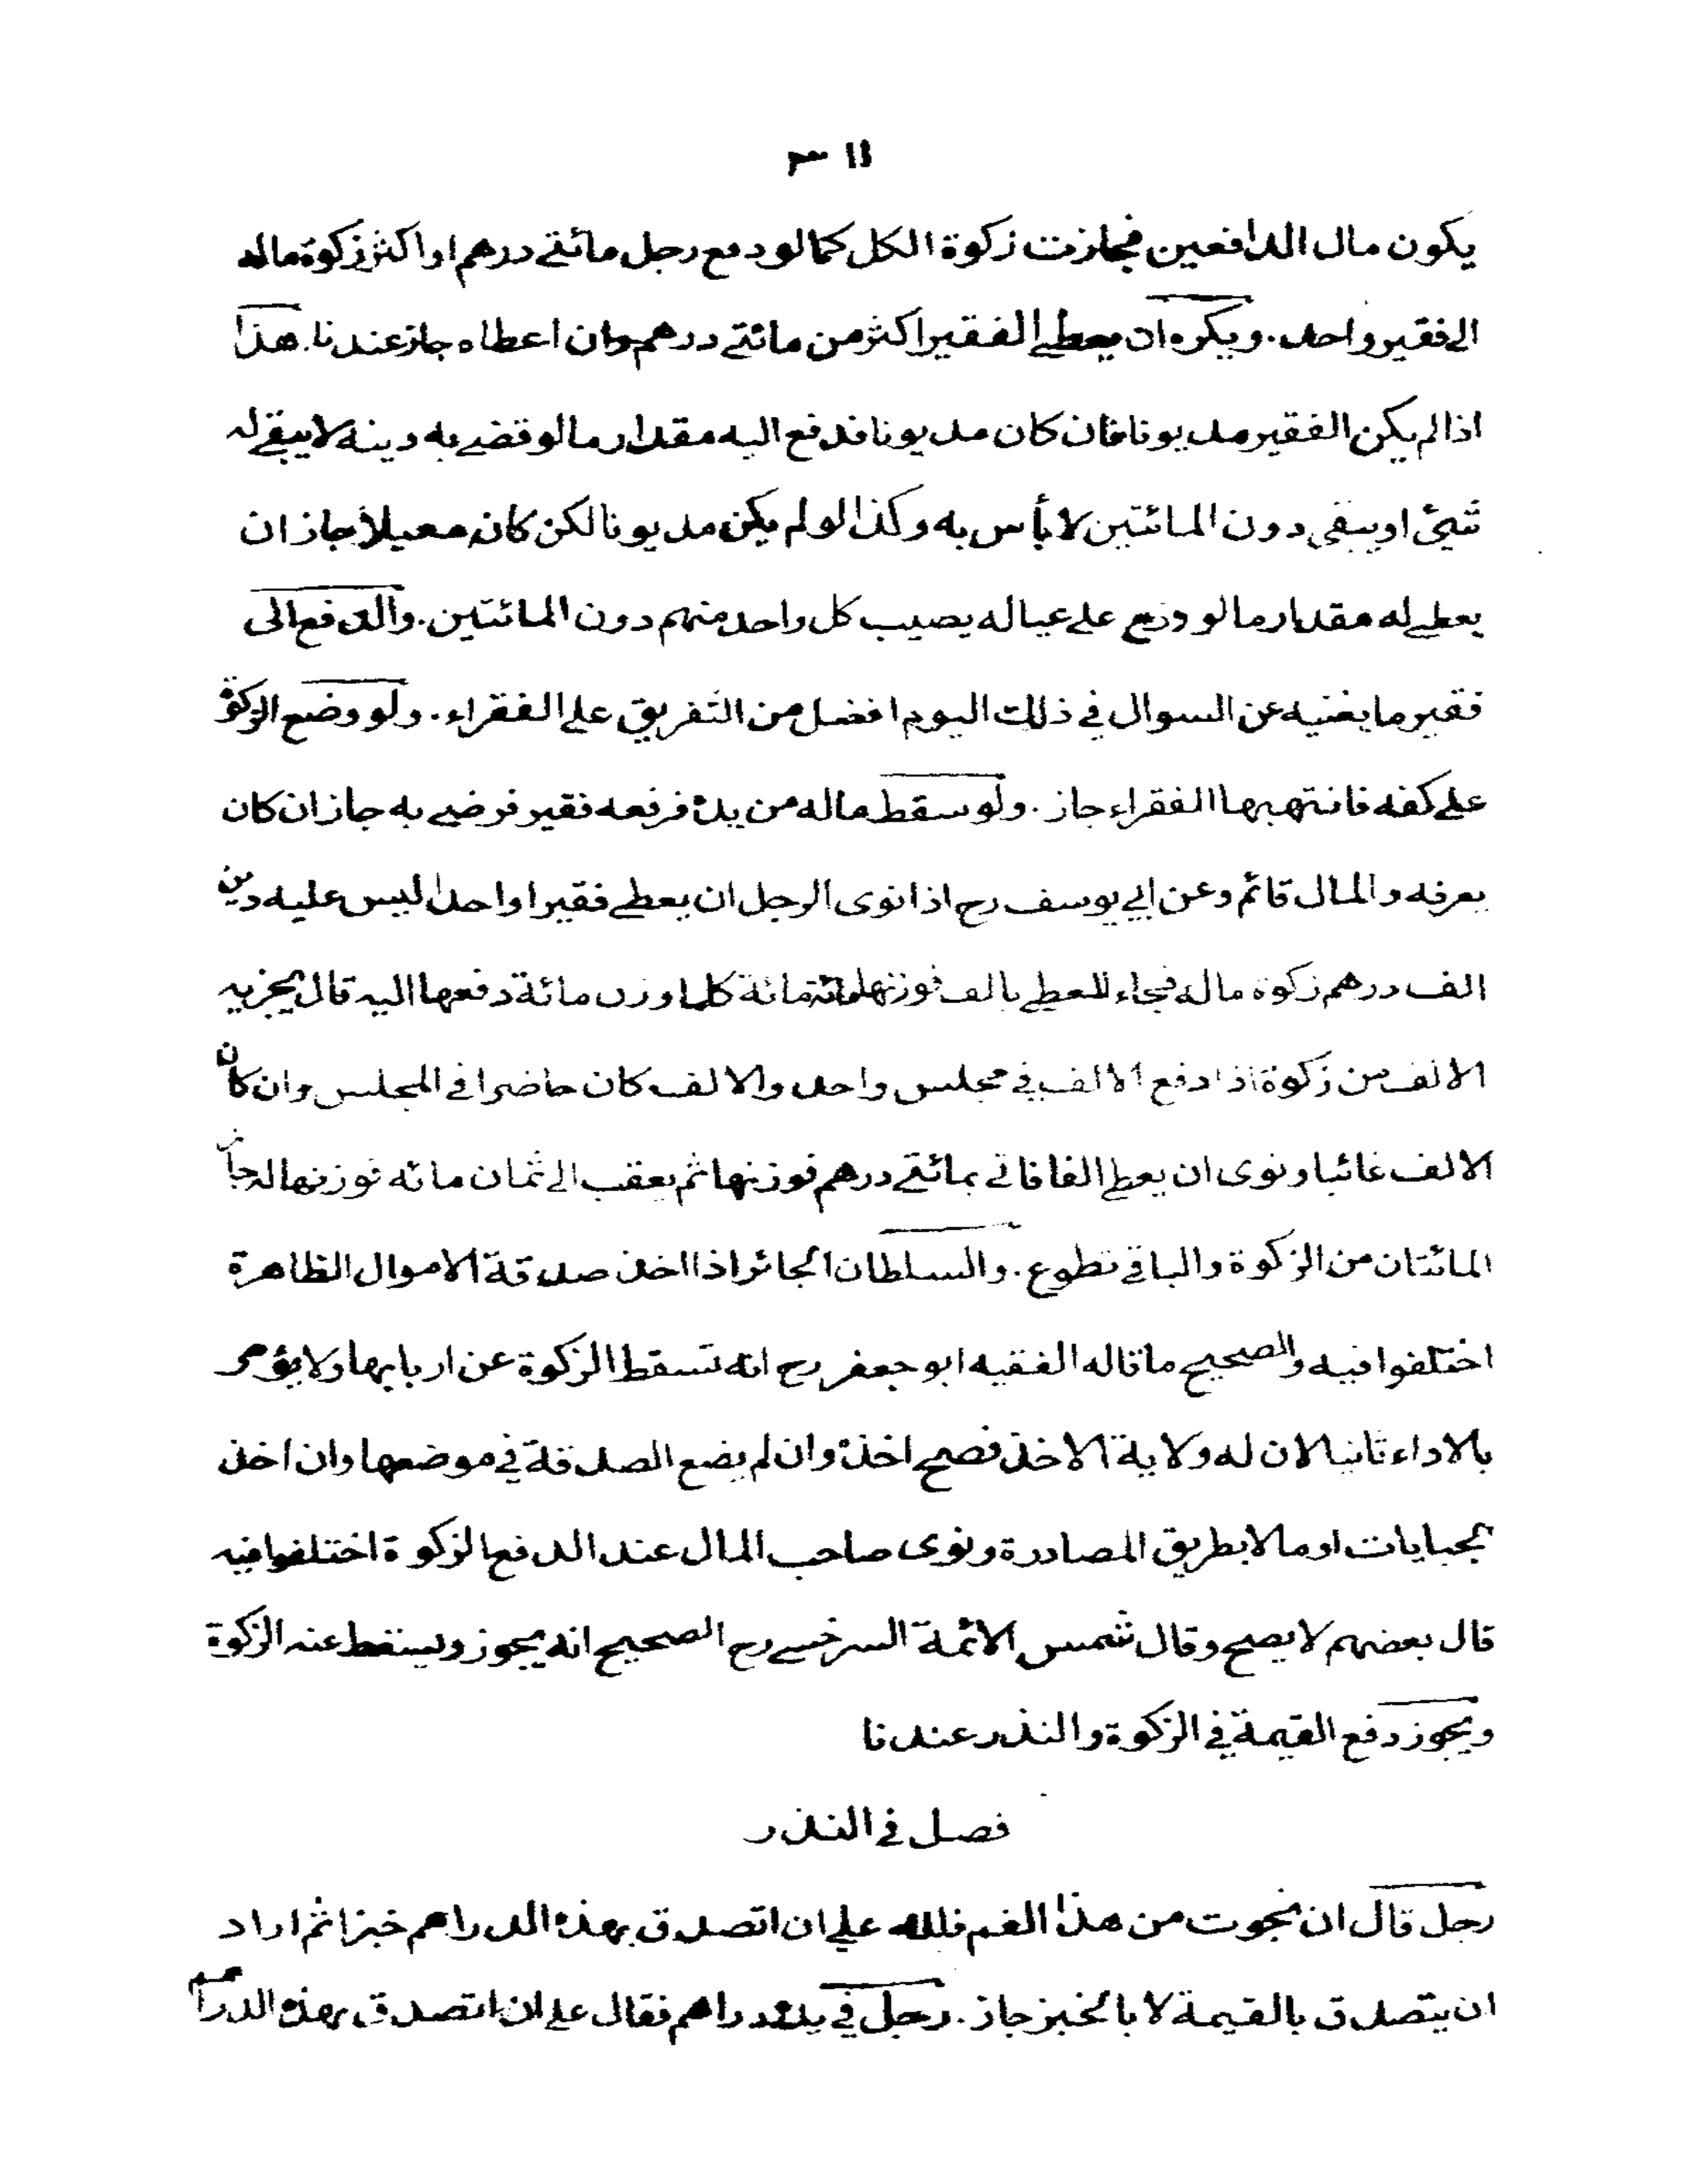 ٣١١
يكون مال الدافعين فجازت زكوة الكل كما لو دفع رجل مائتے درهم او اكثر زكوة ماله
الى فقير واحد. ويكره ان يعطے الفقير اكثر من مائتے درهم وان اعطاه جاز عندنا. هذا
اذا لم يكن الفقير مديونا فان كان مديونا فدفع اليه مقدار ما لو قضے به دينه لا يبقے له
شئ او يبقى دون المائتين لا بأس به وكذا لو لم يكن مديونا لكن كان معيلا جاز ان
يعطے له مقدار ما لو وزع علے عياله يصيب كل واحد منهم دون المائتين. والدفع الى
فقير ما يغنيه عن السوال في ذلك اليوم افضل من التفريق علے الفقراء. ولو وضع الزكوة
علے كفه فانتهبها الفقراء جاز. ولو سقط ماله من يده فرفعه فقير فرضے به جاز ان كان
يعرفه والمال قائم وعن ابي يوسف رح اذا نوى الرجل ان يعطے فقيرا واحدا ليس عليه دين
الف درهم زكوة ماله فجاء للعطے بالف فوزنها مائة مائة كلما وزن مائة دفعها اليه قال يجزيه
الالف من زكوة اذا دفع الالف في مجلس واحد والالف كان حاضرا في المجلس وان كان
الالف غائبا ونوى ان يعطے الفا فاتے بمائتے درهم فوزنها ثم يعقب الے ثمان مائه فوزنها له جاز
المائتان من الزكوة والباقي تطوع. والسلطان الجائر اذا اخذ صدقة الاموال الظاهرة
اختلفوا فيه والصحيح ما قاله الفقيه ابو جعفر رح انه تسقط الزكوة عن اربابها ولا يؤمر
بالاداء ثانيا لان له ولاية الاخذ فصح اخذه وان لم يضع الصدقة في موضعها وان اخذ
الجبايات او مالا بطريق المصادرة ونوى صاحب المال عند الدفع الزكوة اختلفوا فيه
قال بعضهم لا يصح وقال شمس الائمة السرخسے رح الصحيح انه يجوز ويسقط عنه الزكوة
ويجوز دفع القيمة في الزكوة والنذر عندنا
فصل في النذر
رجل قال ان نجوت من هذا الغم فلله علي ان اتصدق بهذه الدراهم خبزا ثم اراد
ان يتصدق بالقيمة لا بالخبز جاز. رجل في يده دراهم فقال علے ان اتصدق بهذه الدراهم